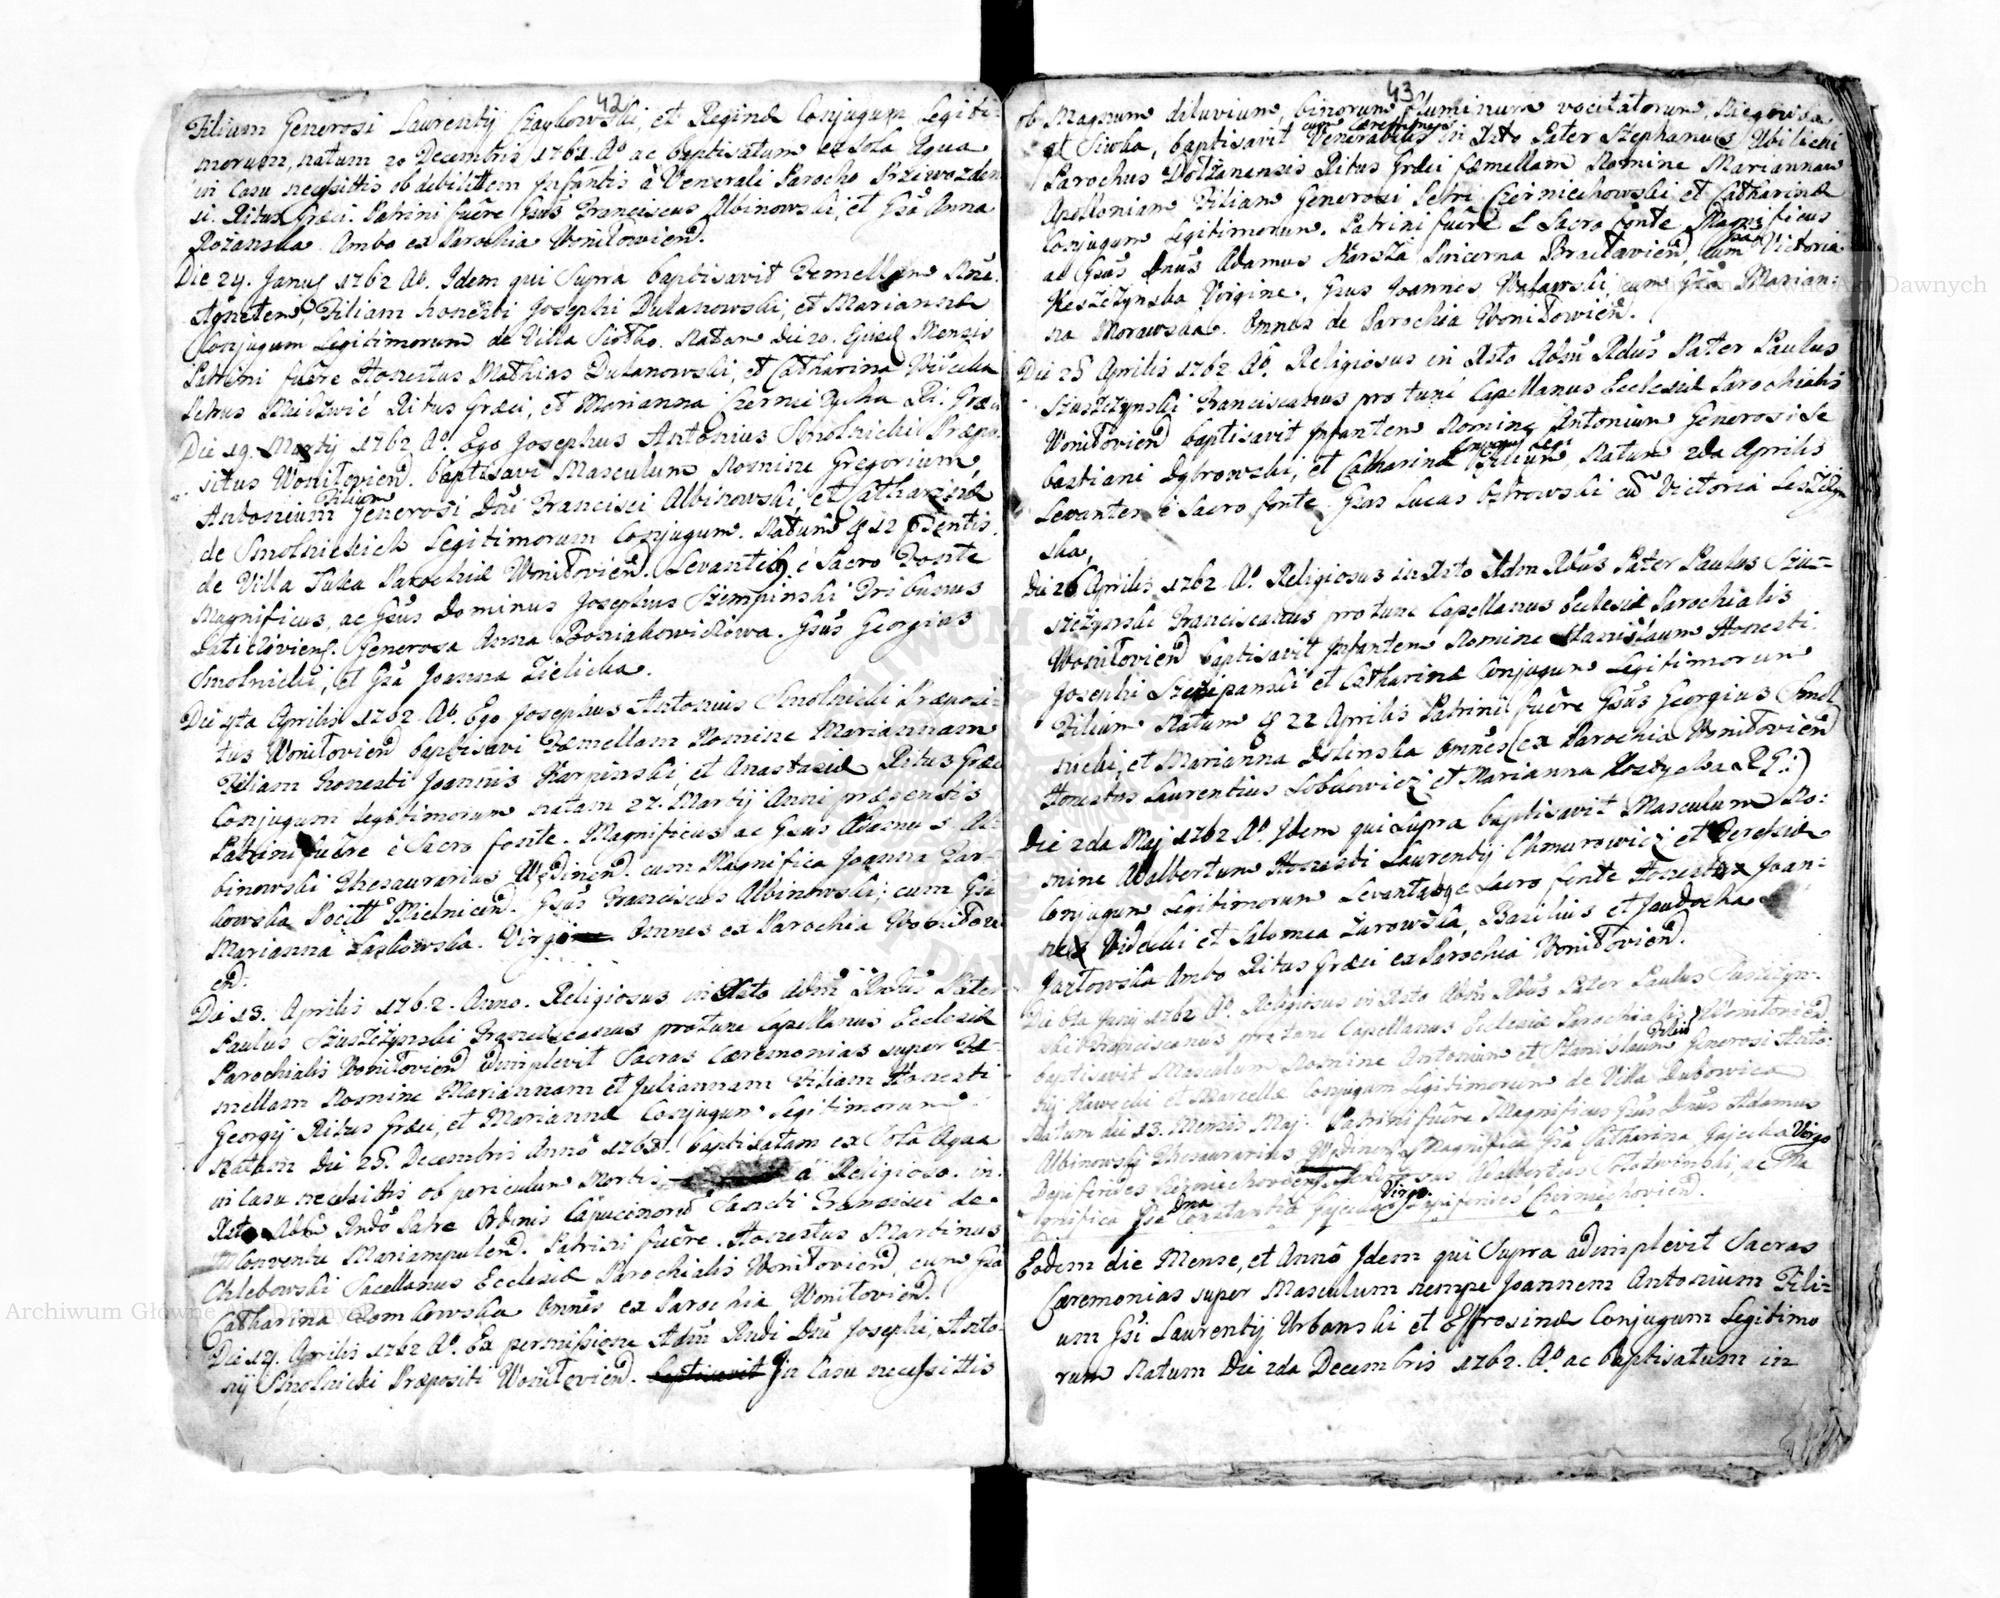 42
Filium Generosi Laurentij Czaykowski, et Reginæ Conjugum Legiti-
morum, natum 20 Decembris 1761. Aº ac baptisatum ex sola Aqua
in Casu necessittis ob debilittem Infantis à Venerali Parocho Przewozden
si. Ritus Græci. Patrini fuêre Gsus Franciscus Albinowski, et Gsa Anna
Rozanska. Ambo ex Parochia Woniłowien.
Die 24. Januj 1762 Aº. Idem qui Supra baptisavit Femellam Nne.
Agnetem, Filiam honesti Josephi Dulanowski, et Mariannæ
Conjugum Legitimorum de Villa Siołko. Natam Die 20. Ejusd Mensis
Patrini fuêre Honestus Mathias Dulanowski, et Catharina
Petrus Ritus Græci, et Marianna Ri. Græci
Die 19. Martij 1762 Aº. Ego Josephus Antonius Smolnicki Præpo-
situs Woniłovien. baptisavi Masculum Nomine Gregorium,
Antonium Filium Generosi Dni Francisci Albinowski, et Catharinæ
de Smolnickich Legitimorum Conjugum. Natum 12 præsentis.
de Villa Tuka Parochiæ Woniłovien. Levantibq é Sacro Fonte
Magnificus, ac Gsus Dominus Josephus Stempinski Tribunus
Laticioviens. Generosa Anna Poniatowiczowa. Gsus Georgius
Smolnicki, et Gsa Joanna Zielicka.
Die 4ta Aprilis 1762. Aº. Ego Josephus Antonius Smolnicki Præposi-
tus Woniłovien baptisavi Fæmellam Nomine Mariannam
Filiam honesti Joannis Karpinski, et Anastasiæ Ritus Græci
Conjugum Legitimorum natam 27. Martij Anni præsentis
Patrini fuêre é Sacro fonte. Magnificus ac Gsus Adamus Al-
binowski Thesaurarius Wędinen. cum Magnifica Joanna Jar-
kowska Pocitt Mielnicen. Gsus Franciscus Albinowski; cum Gsa
Marianna Laskowska. Virgine Omnes ex Parochia Woniłovi
en.
Die 13. Aprilis 1762. Anno. Religiosus in Xsto Adm Rndus Pater
Paulus Szuszczynski Franciscanus protunc Capellanus Ecclesiæ
Parochialis Woniłovien adimplevit Sacras Cæremonias super Fæ-
mellam Nomine Mariannam et Juliannam Filiam Honesti
Georgij Ritus Græci, et Mariannæ Conjugum Legitimorum
Natam Die 25. Decembris Anno 1761. baptisatam ex Sola Aqua
in Casu necessittis ob periculum Mortis à Religioso in
Xsto Adm Rndo Patre Ordinis Capucinorû Sancti Francisci de
Conventu Mariampolen. Patrini fuêre. Honestus Martinus
Chlebowski Sacellanus Ecclesiæ Parochialis Woniłovien, cum Gsa
Catharina Dombowska Omnes ex Parochia Woniłovien.
Die 19. Aprilis 1762 Aº. Ex permissione Adm Rndi Dni Josephi, Anto-
nij Smolnicki Præpositi Woniłovien. baptisavit In Casu necessittis
43
ob Magnum diluvium, binorum fluminum vocitatorum,
et Siwka, baptisavit cum Cæremonijs Venerabilis in Xsto Pater Stephanus
Parochus Dołżanensis Ritus Græci fæmellam Nomine Mariannam
Apolloniam Filiam Generosi Petri Czerniechowski et Catharinæ
Conjugum Legitimorum. Patrini fuêre é Sacro fonte Magnificus
ac Gsus Dnus Adamus Karsza Pincerna Bracłavien, cum Gsa Victoria
Keszczynska Virgine, Gsus Joannes cum Gsa Marian-
na Morawska. Omnes de Parochia Woniłowien.
Die 25 Aprilis 1762 Aº. Religiosus in Xsto Adm Rdus Pater Paulus
Szuszczynski Franciscanus pro tunc Capellanus Ecclesiæ Parochialis
Woniłovien baptisavit Infantem Nomine Antonium Generosi Se
bastiani Dąbrowski, et Catharinæ Conjug Legi Filium, Natum 2da Aprilis
Levantes é Sacro fonte. Gsus Lucas Ostrowski cu Victoria Leszczyn
ska,
Die 26 Aprilis 1762 Aº. Religiosus in Xsto Adm Rdus Pater Paulus Szus-
szczynski Franciscanus pro tunc Capellanus Ecclesiæ Parochialis
Woniłovien baptisavit Infantem Nomine Stanislaum Honesti
Josephi Szczipanski et Catharinæ Conjugum Legitimorum
Filium Natum 22 Aprilis Patrini fuêre Gsus Georgius Smol
nicki, et Marianna Dolinska Omnes (ex Parochia Woniłovien
Honestus Laurentius Lobkowicz et Marianna R G:)
Die 2da Maj 1762 Aº. Idem qui Supra baptisavit Masculum No:
mine Adalbertum Honesti Laurentij Chmurowicz et Teresiæ
Conjugum Legitimorum Levantibq e Sacro fonte Honestus Joan-
nes Widecki et Salomea Zurowska, Basilius et Jaudocha
Jartowska Ambo Ritus Græci ex Parochia Woniłovien.
Die 6ta Junij 1762 Aº. Religiosus in Xsto Adm Rdus Pater Paulus Szuszczyn-
ski Franciscanus pro tunc Capellanus Ecclesiæ Parochialis Woniłovien
baptisavit Masculum Nomine Antonium et Stanislaum Filiu Generosi Anto-
nij Hawecki et Marcellæ Conjugum Legitimorum de Villa Dubowica
Natum die 13. Mensis Maj. Patrini fuêre Magnificus Gsus Dnus Adamus
Albinowski Thesaurarius Wędinen, Magnifica Gsa Catharina Gajecka Virgo
Dapiferides Adalbertus Kołotwinski, ac Ma
gnifica Gsa Dna Constantia Gajecka Virgo Dapiferides Czerniechovien.
Eodem die Mense, et Anno Idem qui Supra adimplevit Sacras
Cæremonias super Masculum nempe Joannem Antonium Fili-
um Gsi Laurentij Urbanski et Effrosinæ Conjugum Legitimo
rum Natum Die 2da Decembris 1762. Aº ac baptisatum in
Archiwum Główne Akt Dawnych
Archiwum Główne Akt Dawnych